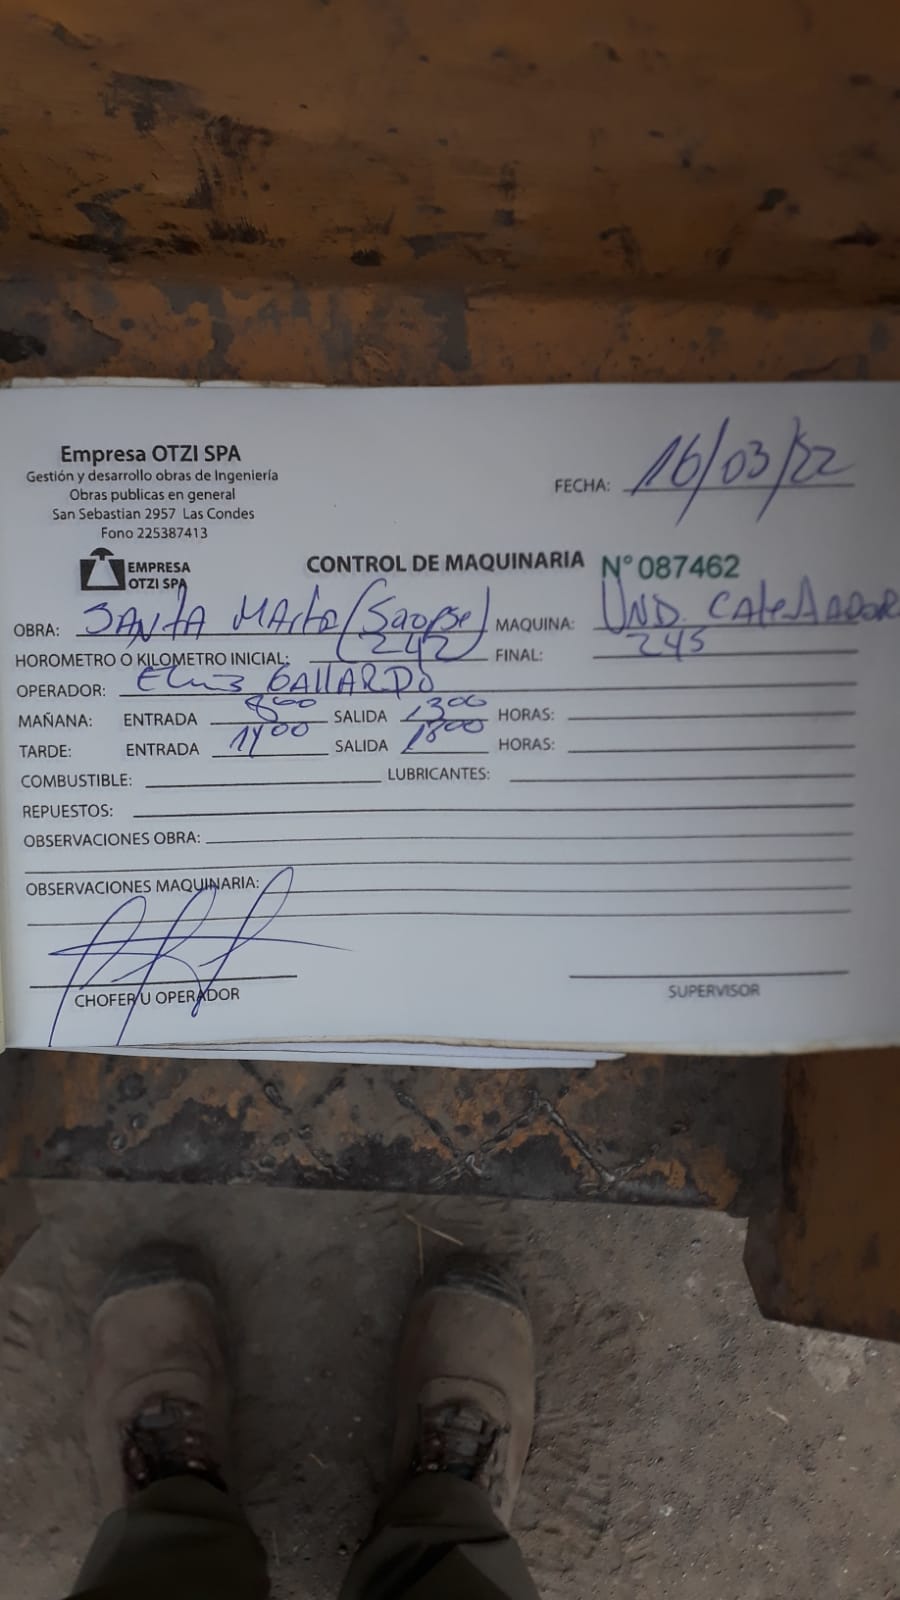 Empresa OTZI SPA
Gestión y desarrollo obras de Ingeniería
Obras publicas en general
San Sebastian 2957 Las Condes
Fono 225387413
FECHA: 16/03/22
EMPRESA
OTZI SPA
CONTROL DE MAQUINARIA N° 087462
OBRA: SANTA MARTA MAQUINA: UND.
HOROMETRO O KILOMETRO INICIAL: 242 FINAL: 245
OPERADOR: GALLARDO
MAÑANA: ENTRADA 800 SALIDA 1300 HORAS:
TARDE: ENTRADA 1400 SALIDA 1800 HORAS:
COMBUSTIBLE: LUBRICANTES:
REPUESTOS:
OBSERVACIONES OBRA:
OBSERVACIONES MAQUINARIA:
CHOFER U OPERADOR SUPERVISOR